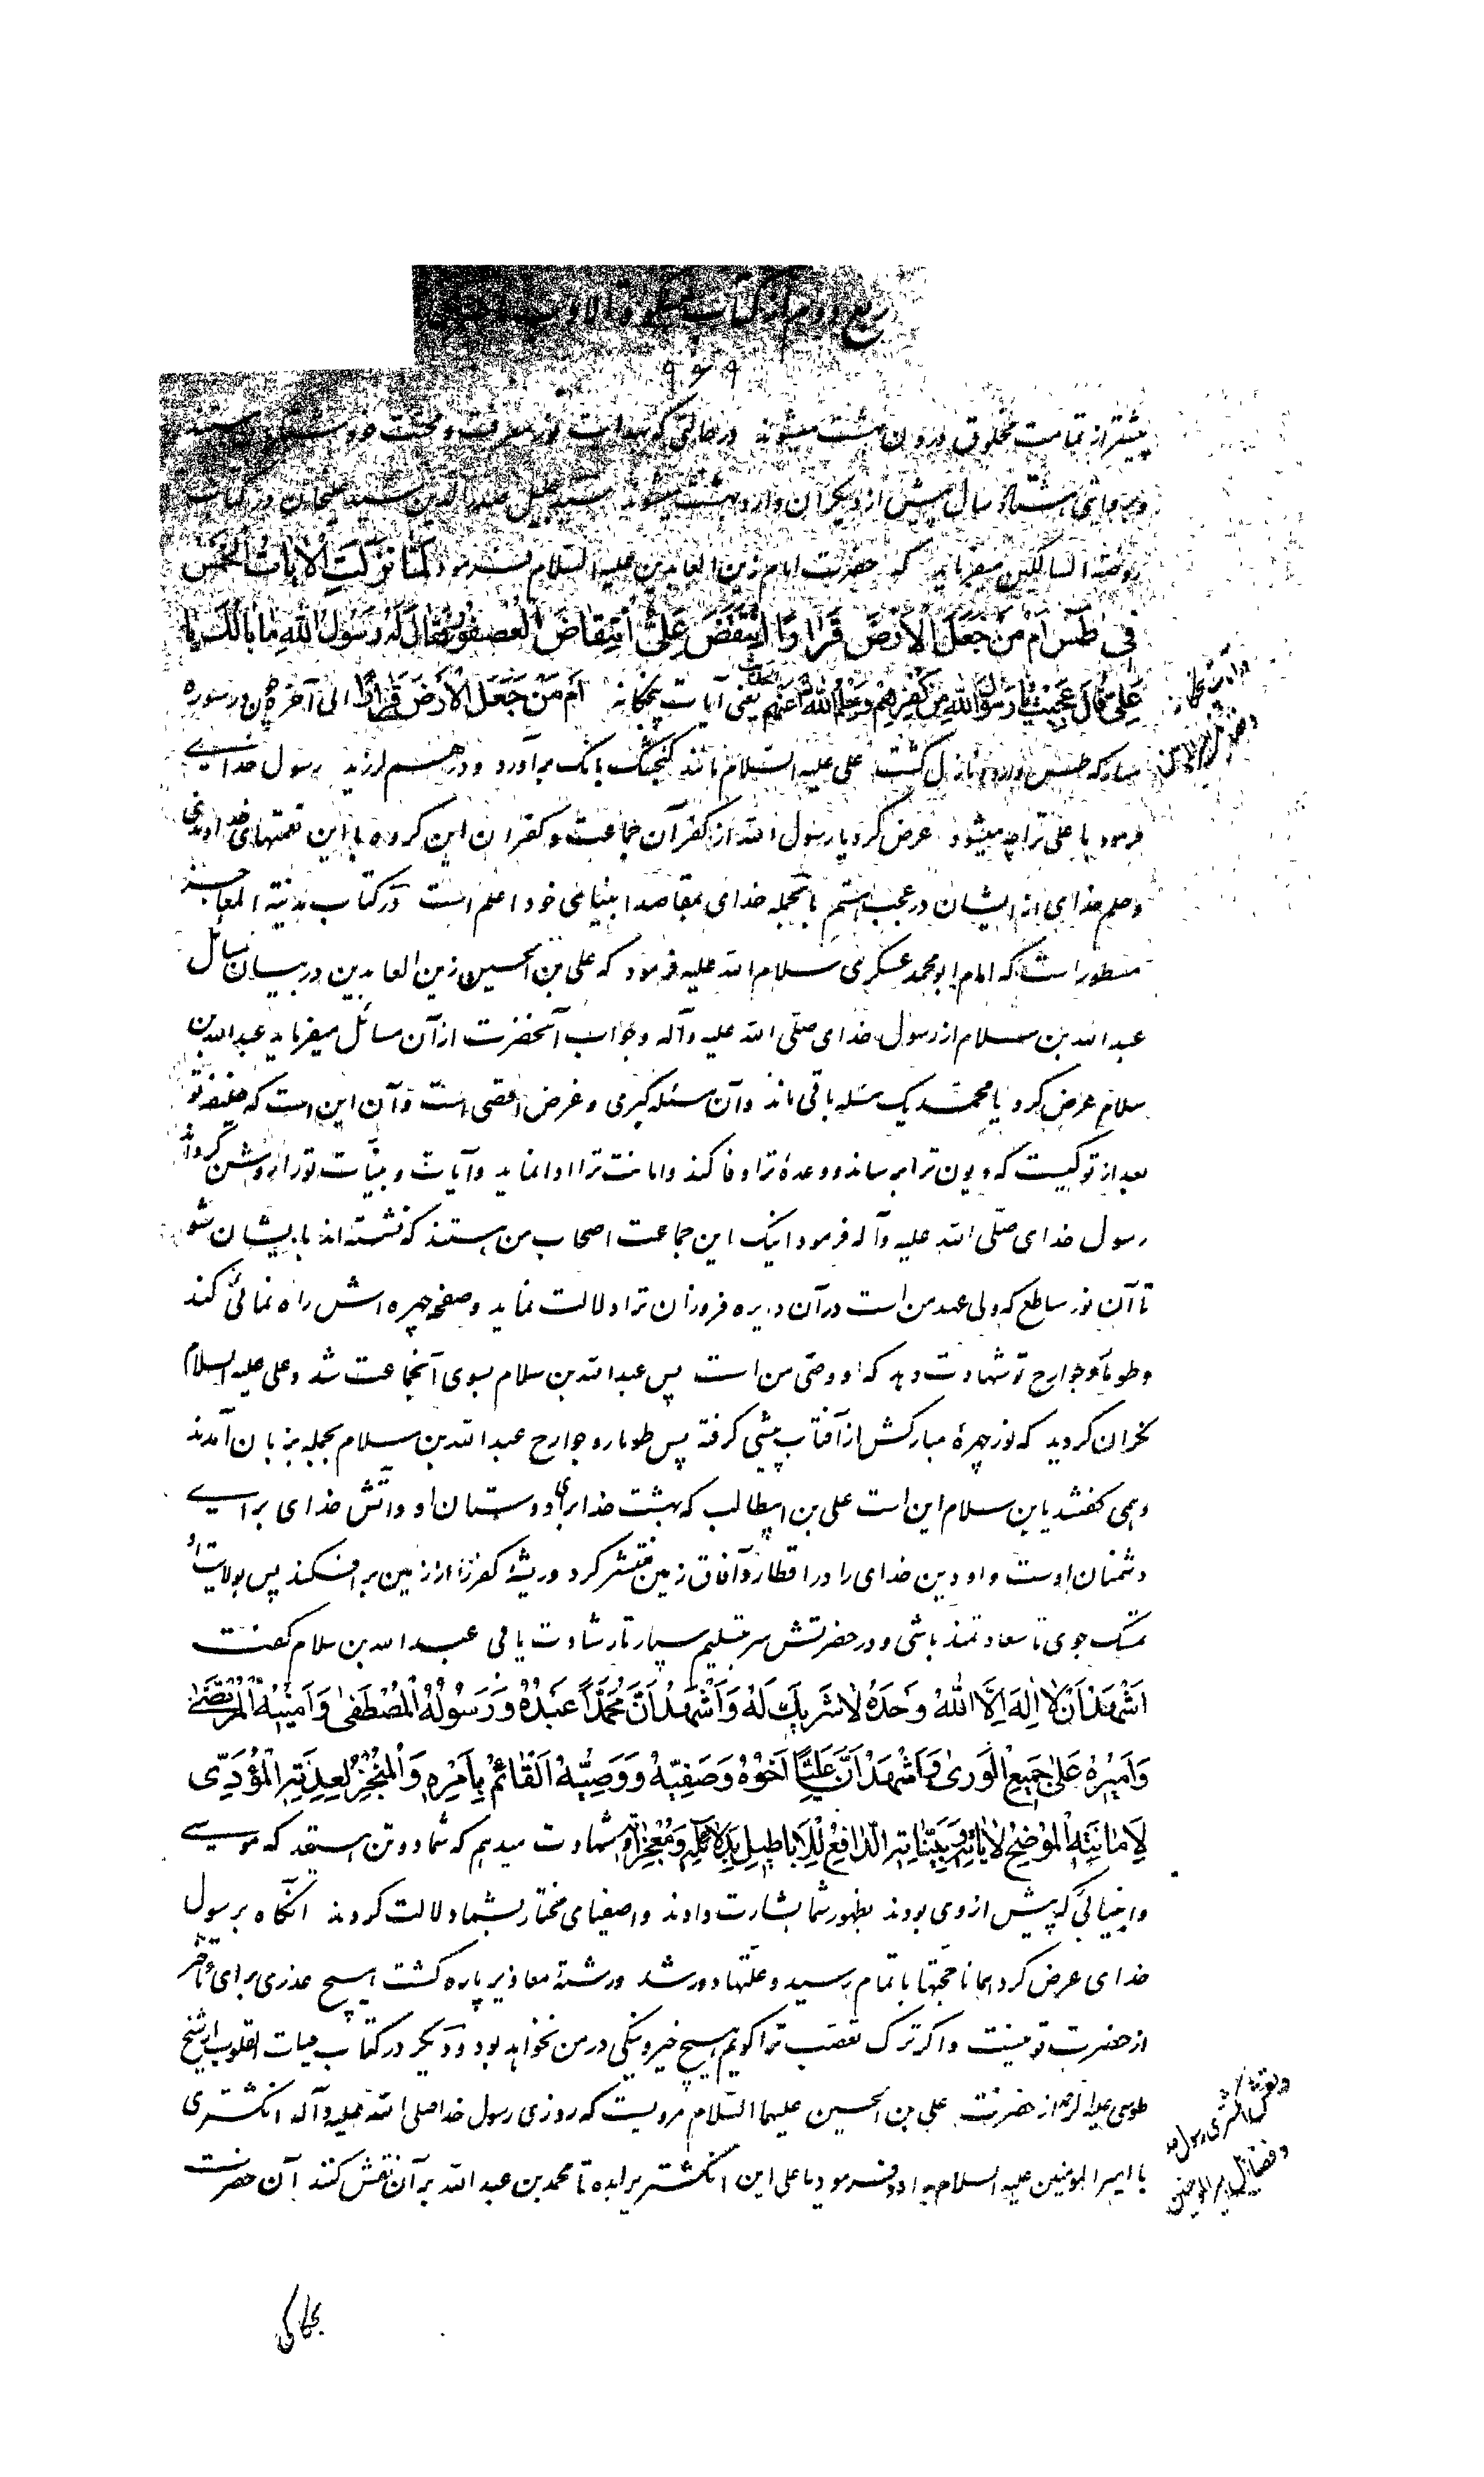 ربع دوم از کتاب مشکوة الادب
۹۶۹
پیشتر از تمامت مخلوق درون بهشت میشوند در حالتی که بهدایت نور معرفت و محبت
و بروایتی هشتاد سال پیش از دیگران وارد بهشت میشوند سید جلیل صدرالدین سید علیخان در کتاب
روضة السالکین میفرماید که حضرت امام زین العابدین علیه السلام فرمود لَمّا نَزَلَتِ الْایاتُ الْخَمْسُ
فی طس اَمْ مَنْ جَعَلَ الْاَرْضَ قَرارًا اِنْتَفَضَ عَلِیٌّ اِنْتِفاضَ الْعُصْفُورِ فَقالَ لَهُ رَسُولُ اللهِ ما بالُکَ یا
عَلِیُّ قالَ عَجِبْتُ یا رَسُولَ اللهِ مِنْ کُفْرِهِمْ وَ حِلْمِ اللهِ عَنْهُمْ یعنی آیات پنجگانه اَمْ مَنْ جَعَلَ الْاَرْضَ قَرارًا الی آخرها چون در سوره
مبارکه طس وارده نازل گشت علی علیه السلام مانند گنجشک بانگ برآورد و درهم لرزید رسول خدای
فرمود یا علی ترا چه میشود عرض کرد یا رسول الله از کفر آن جماعت و کفران این گروه با این نعمتهای خداوندی
و حلم خدای از ایشان در عجب هستم بالجمله خدای بمقاصد انبیای خود اعلم است و در کتاب مدینة المعاجز
مسطور است که امام ابو محمد عسکری سلام الله علیه فرمود که علی بن الحسین زین العابدین در بیان مسائل
عبدالله بن سلام از رسول خدای صلی الله علیه و آله و جواب آنحضرت از آن مسائل میفرماید عبدالله بن
سلام عرض کرد یا محمد یک مسئله باقی ماند و آن مسئله کبری و غرض اقصی است و آن این است که خلیفه تو
بعد از تو کیست که دیون ترا برساند و وعدهٔ ترا وفا کند و امانت ترا ادا نماید و آیات و بینات تو را روشن گرداند
رسول خدای صلی الله علیه و آله فرمود اینک این جماعت اصحاب من هستند که نشسته اند بایشان شو
تا آن نور ساطع که ولی عهد من است در آن دیره فروزان ترا دلالت نماید و صفحه چهره اش راه نمائی کند
و طومار و جوارح تو شهادت دهد که او وصی من است پس عبدالله بن سلام بسوی آنجماعت شد و علی علیه السلام
نگران گردید که نور چهرهٔ مبارکش از آفتاب پیشی گرفته پس طومار و جوارح عبدالله بن سلام بجمله بزبان آمدند
و همی گفتند یابن سلام این است علی بن ابیطالب که بهشت خدا برای دوستان او و آتش خدای برای
دشمنان اوست و او دین خدای را در اقطار و آفاق زمین منتشر کرد و ریشهٔ کفر را از زمین برافکند پس بولایت او
تمسک جوی تا سعادتمند باشی و در حضرتش سر تسلیم بسپار تا رشادت یابی عبدالله بن سلام گفت
اَشْهَدُ اَنْ لا اِلهَ اِلَّا اللهُ وَحْدَهُ لا شَریکَ لَهُ وَ اَشْهَدُ اَنَّ مُحَمَّدًا عَبْدُهُ وَ رَسُولُهُ الْمُصْطَفی وَ اَمینُهُ الْمُرْتَضی
وَ اَمیرُهُ عَلی جَمیعِ الْوَری وَ اَشْهَدُ اَنَّ عَلِیًّا اَخُوهُ وَ صَفِیُّهُ وَ وَصِیُّهُ الْقائِمُ بِاَمْرِهِ وَ الْمُنْجِزُ لِعِدَتِهِ الْمُؤَدّی
لِاَمانَتِهِ الْمُوضِحُ لِایاتِهِ وَ بَیِّناتِهِ الدّافِعُ لِلْاَباطیلِ بِدَلائِلِهِ وَ مُعْجِزاتِهِ و شهادت میدهم که شما دو تن هستید که موسی
و انبیائی که پیش از وی بودند بظهور شما بشارت دادند و اصفیای مختار بشما دلالت کردند آنگاه برسول
خدای عرض کرد همانا حجتها باتمام رسید و علتها دور شد و رشتهٔ معاذیر پاره گشت هیچ عذری برای تأخر
از حضرت تو نیست و اگر ترک تعصب ترا گویم هیچ خیر و نیکی در من نخواهد بود و دیگر در کتاب حیات القلوب از شیخ
طوسی علیه الرحمه از حضرت علی بن الحسین علیهما السلام مرویست که روزی رسول خدا صلی الله علیه و آله انگشتری
با امیر المؤمنین علیه السلام بداد و فرمود یا علی این انگشتر برا بده تا محمد بن عبدالله بر آن نقش کنند آن حضرت
و نقش انگشتری رسول خدا
و فضایل امیر المؤمنین
بحکاکی